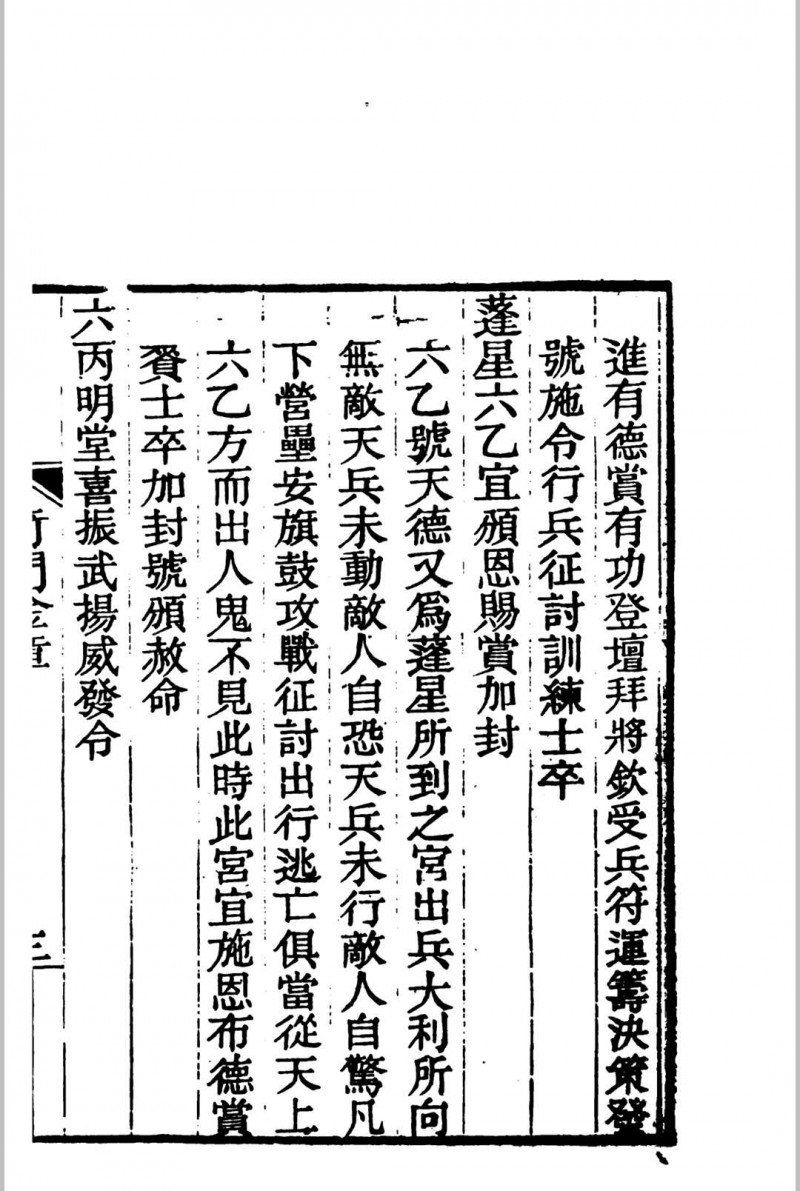 進有德賞有功登壇拜將欽受兵符運籌決策發
號施令行兵征討訓練士卒
蓬星六乙宜頒恩賜賞加封
六乙號天德又爲蓬星所到之宮出兵大利所向
無敵天兵未動敵人自恐天兵未行敵人自驚凡
下營壘安旗鼓攻戰征討出行逃亡俱當從天上
六乙方而出人鬼不見此時此宮宜施恩布德賞
賚士卒加封號頒赦命
六丙明堂喜振武揚威發令
三